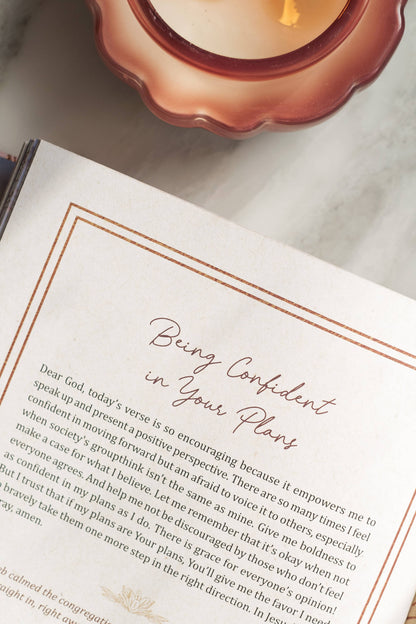 Being Confident
in Your Plans
Dear God, today's verse is so encouraging because it empowers me to
speak up and present a positive perspective. There are so many times I feel
confident in moving forward but am afraid to voice it to others, especially
when society's groupthink isn't the same as mine. Give me boldness to
make a case for what I believe. Let me remember that it's okay when not
everyone agrees. And help me not be discouraged by those who don't feel
as confident in my plans as I do. There is grace for everyone's opinion!
But I trust that if my plans are Your plans, You'll give me the favor I need
bravely take them one more step in the right direction. In Jesu
ay, amen.
eb calmed the congregatin
aught in, right aw